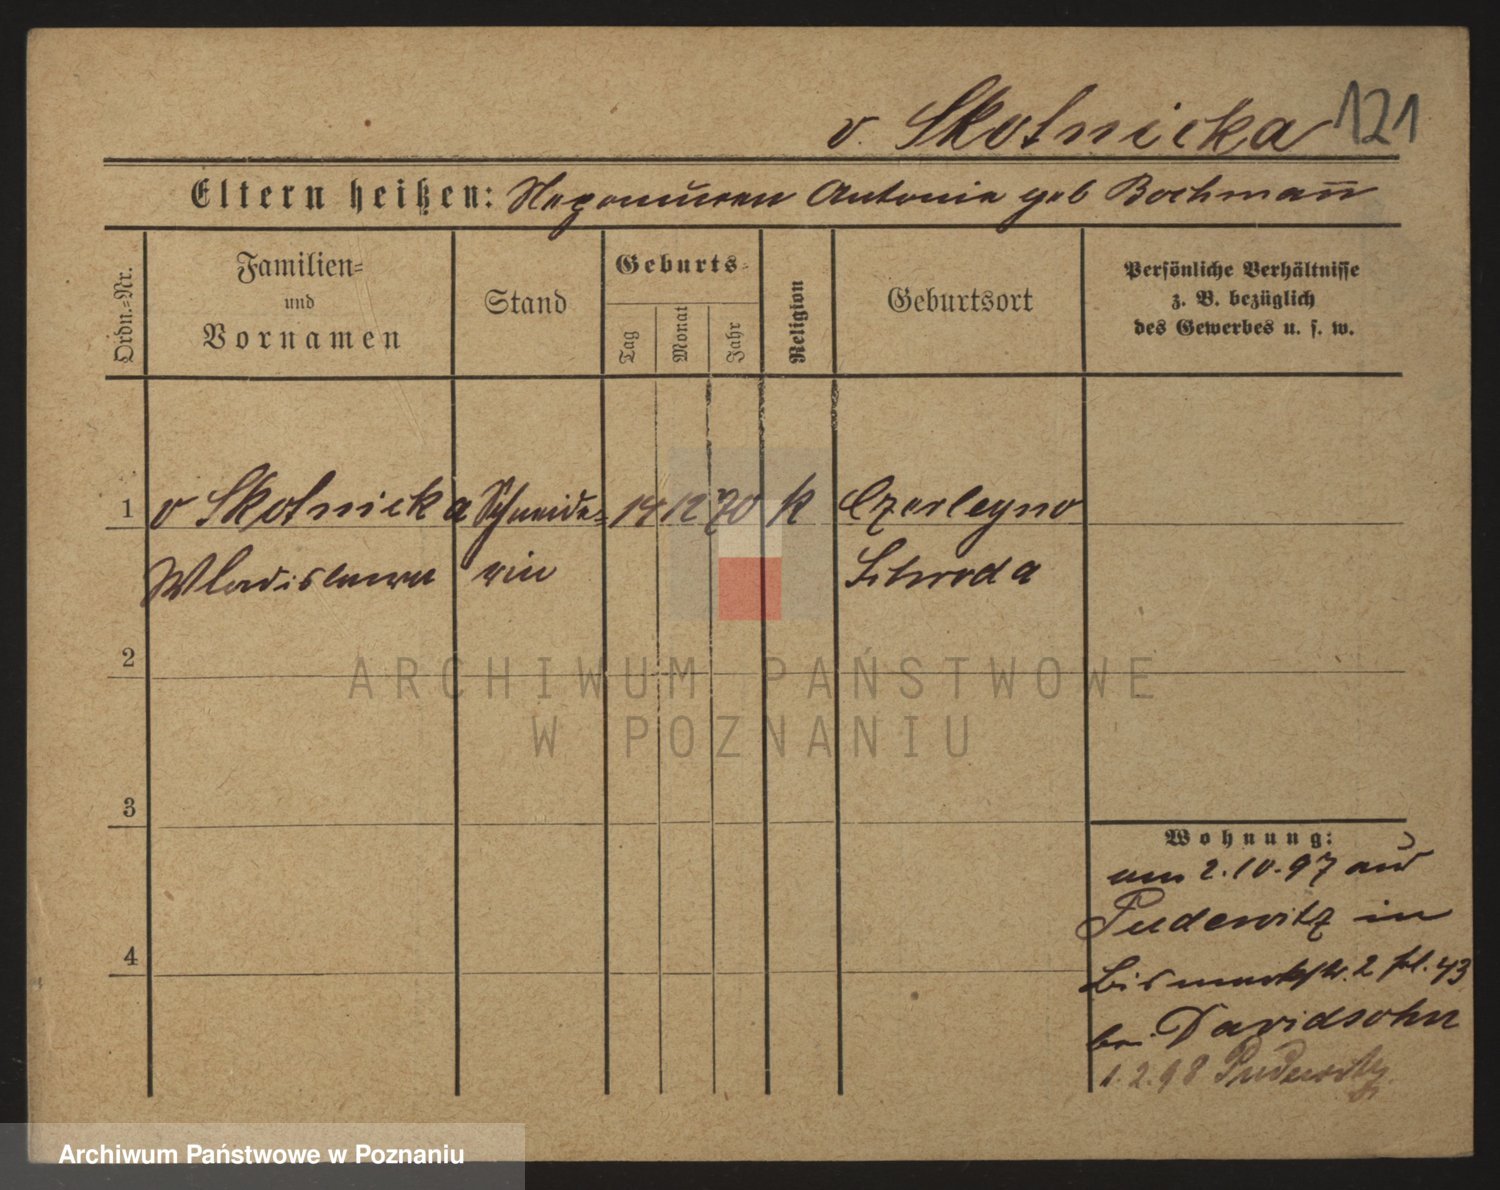 v. Skotnicka 121
Eltern heißen: Nepomucen Antonie geb Bochmann
Ordn.-Nr.
Familien-
und
Vornamen
Stand
Geburts-
Tag
Monat
Jahr
Religion
Geburtsort
Persönliche Verhältnisse
z. B. bezüglich
des Gewerbes u. s. w.
1 v Skotnicka Schneide- 14 12 70 k Czerleyno
Wladislawa rin Schroda
2
3
4
Wohnung:
am 2.10.97 aus
Pudewitz in
Bismarkstr. 2 fol. 43
bei Davidsohn
1.2.98 Pudewitz
ARCHIWUM PAŃSTWOWE
W POZNANIU
Archiwum Państwowe w Poznaniu